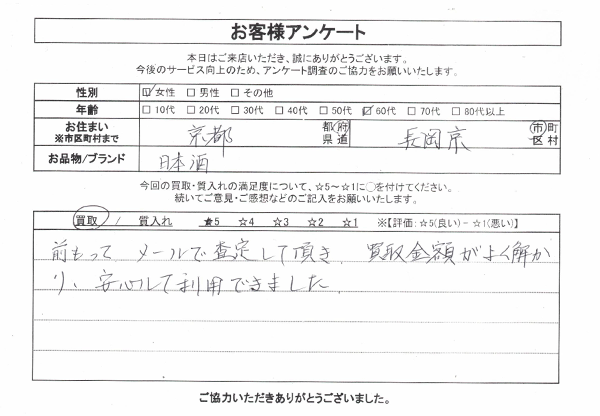 お客様アンケート
本日はご来店いただき、誠にありがとうございます。
今後のサービス向上のため、アンケート調査のご協力をお願いいたします。
性別 ☑女性 □男性 □その他
年齢 □10代 □20代 □30代 □40代 □50代 ☑60代 □70代 □80代以上
お住まい ※市区町村まで 京都 都府県道 長岡京 市町区村
お品物/ブランド 日本酒
今回の買取・質入れの満足度について、☆5～☆1に○を付けてください。
続いてご意見・ご感想などのご記入をお願いいたします。
買取 / 質入れ ★5 ☆4 ☆3 ☆2 ☆1 ※【評価:☆5(良い) - ☆1(悪い)】
前もって メールで査定して頂き、買取金額がよく解か
り、安心して利用できました。
ご協力いただきありがとうございました。